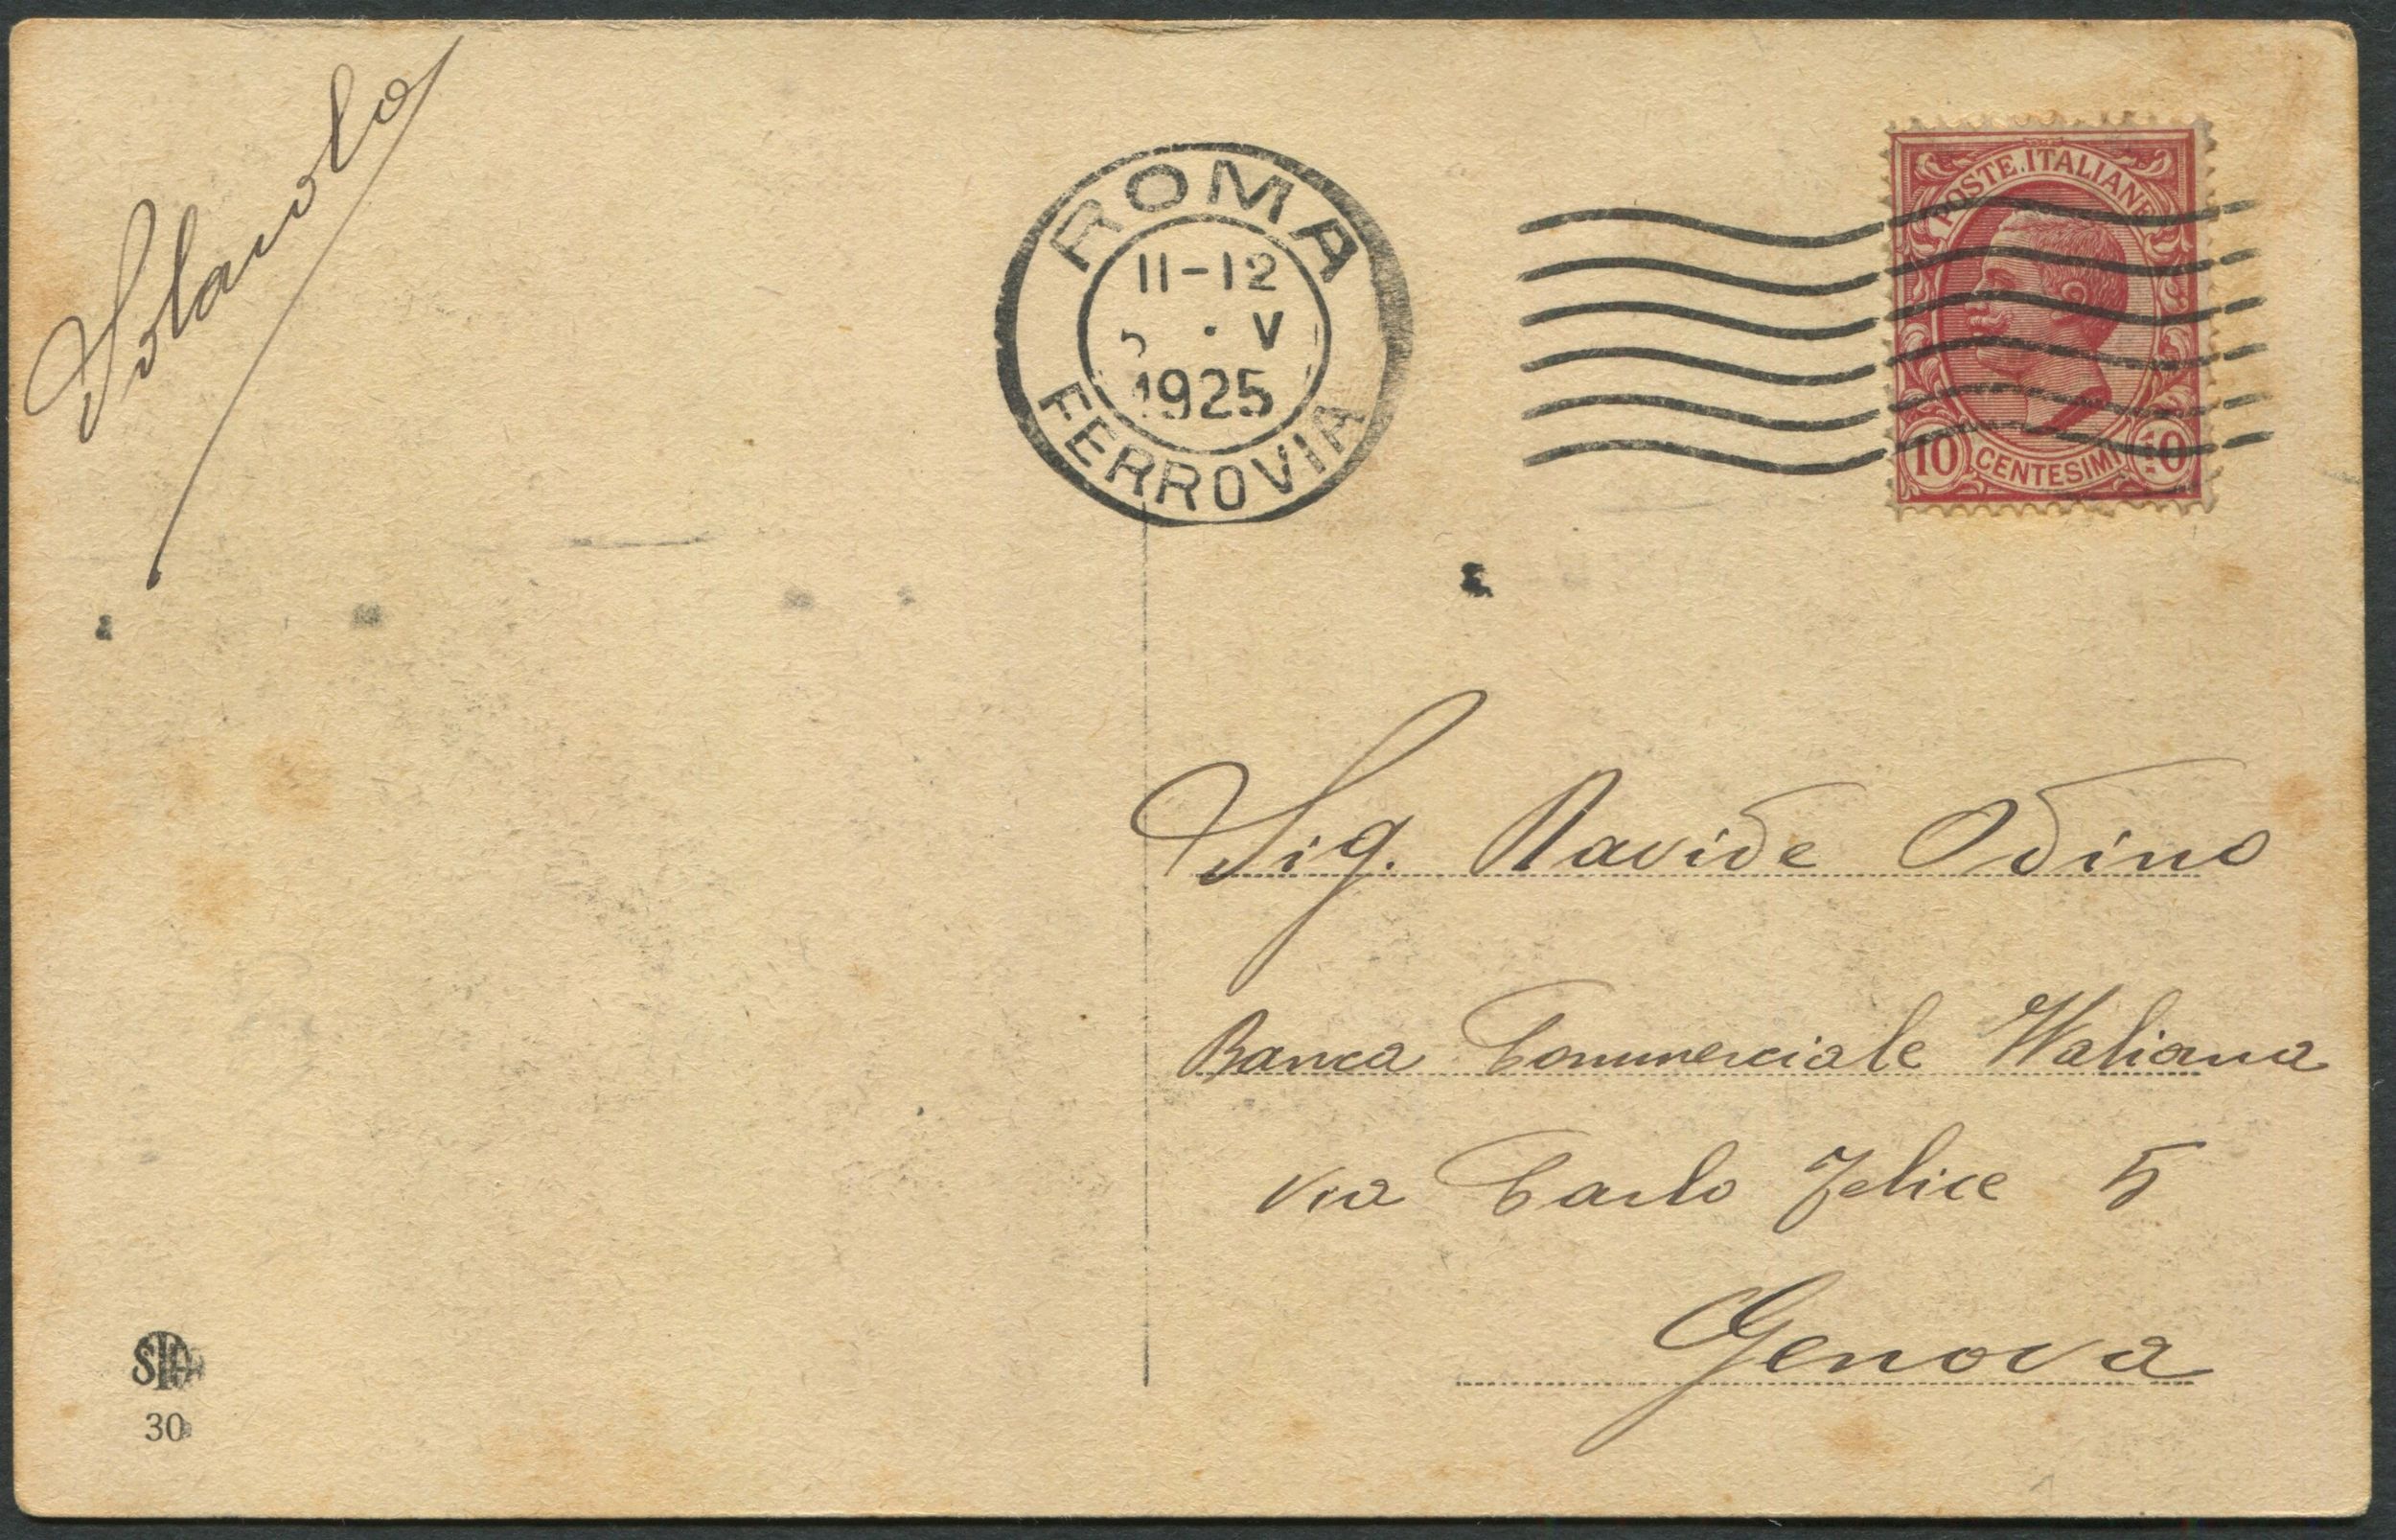 ROMA
11-12
V
1925
FERROVIA
POSTE ITALIANE
10 CENTESIMI 10
Sig. Davide Odino
Banca Commerciale Italiana
via Carlo Felice 5
Genova
30